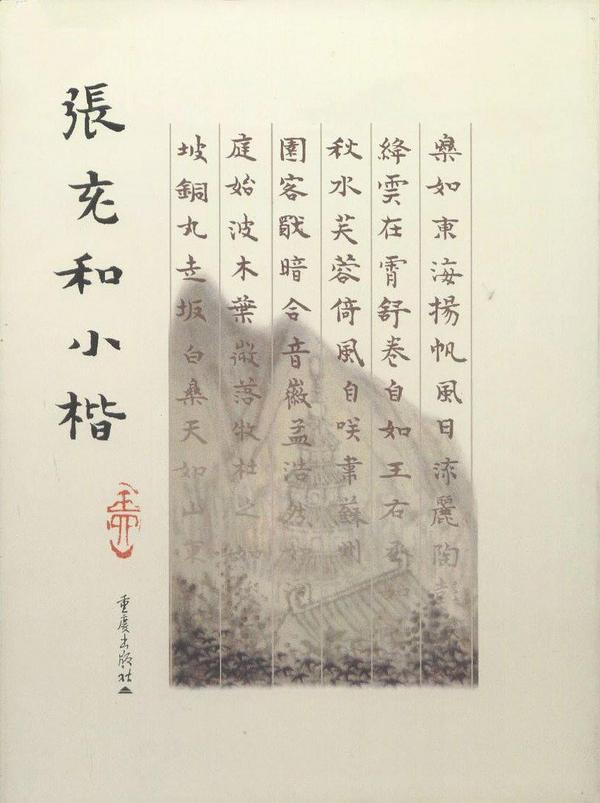 張充和小楷
樂如東海揚帆風日流麗陶彭
絳雲在霄舒卷自如王右丞如
秋水芙蓉倚風自咲韋蘇州
園客暗合音徽孟浩然如洞
庭始波木葉微落牧杜之如
坡銅丸走坂白樂天如山東
重慶出版社